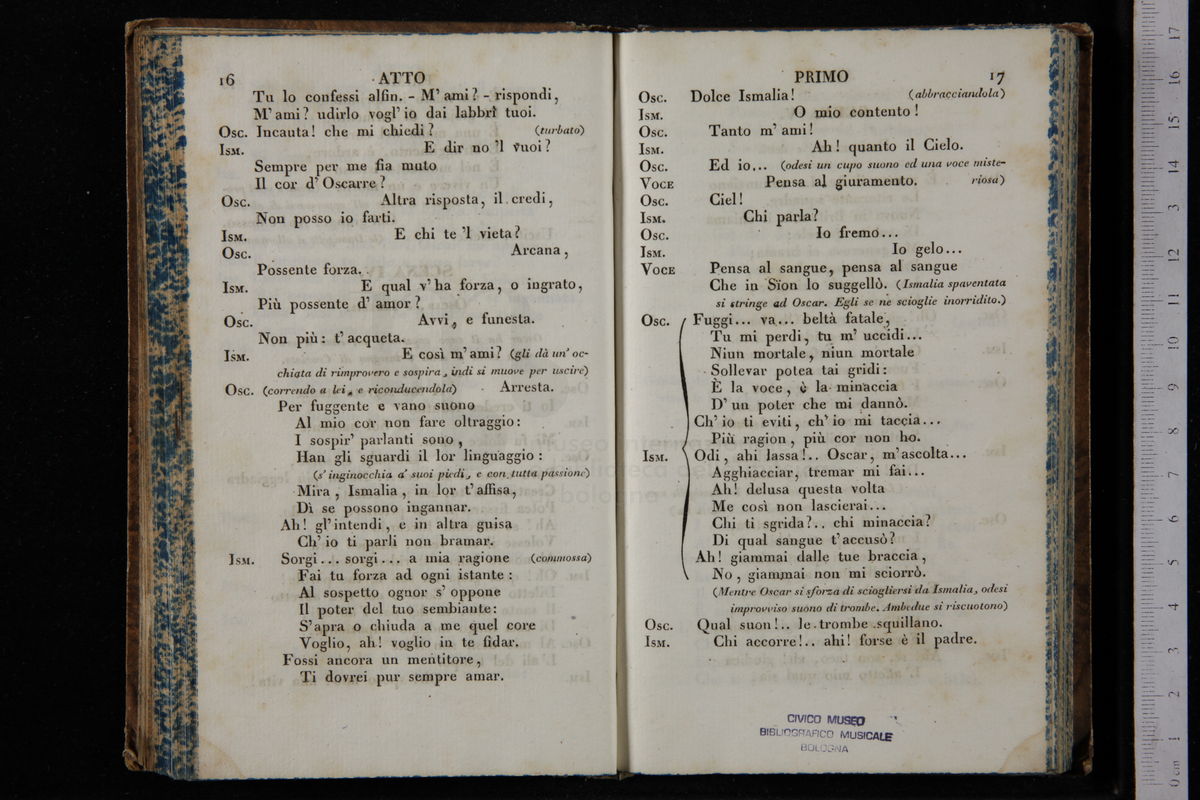 16 ATTO
Tu lo confessi alfin. - M' ami? - rispondi,
M' ami? udirlo vogl' io dai labbri tuoi.
Osc. Incauta! che mi chiedi? (turbato)
Ism. E dir no 'l vuoi?
Sempre per me fia muto
Il cor d' Oscarre?
Osc. Altra risposta, il credi,
Non posso io farti.
Ism. E chi te 'l vieta?
Osc. Arcana,
Possente forza.
Ism. E qual v' ha forza, o ingrato,
Più possente d' amor?
Osc. Avvi, e funesta.
Non più: t' acqueta.
Ism. E così m' ami? (gli dà un' oc-
chiata di rimprovero e sospira, indi si muove per uscire)
Osc. (correndo a lei, e riconducendola) Arresta.
Per fuggente e vano suono
Al mio cor non fare oltraggio:
I sospir' parlanti sono,
Han gli sguardi il lor linguaggio:
(s' inginocchia a' suoi piedi, e con tutta passione)
Mira, Ismalia, in lor t' affisa,
Dì se possono ingannar.
Ah! gl' intendi, e in altra guisa
Ch' io ti parli non bramar.
Ism. Sorgi... sorgi... a mia ragione (commossa)
Fai tu forza ad ogni istante:
Al sospetto ognor s' oppone
Il poter del tuo sembiante:
S' apra o chiuda a me quel core
Voglio, ah! voglio in te fidar.
Fossi ancora un mentitore,
Ti dovrei pur sempre amar.
PRIMO 17
Osc. Dolce Ismalia! (abbracciandola)
Ism. O mio contento!
Osc. Tanto m' ami!
Ism. Ah! quanto il Cielo.
Osc. Ed io... (odesi un cupo suono ed una voce miste-
Voce Pensa al giuramento. riosa)
Osc. Ciel!
Ism. Chi parla?
Osc. Io fremo...
Ism. Io gelo...
Voce Pensa al sangue, pensa al sangue
Che in Sïon lo suggellò. (Ismalia spaventata
si stringe ad Oscar. Egli se ne scioglie inorridito.)
Osc. Fuggi... va... beltà fatale,
Tu mi perdi, tu m' uccidi...
Niun mortale, niun mortale
Sollevar potea tai gridi:
È la voce, è la minaccia
D' un poter che mi dannò.
Ch' io ti eviti, ch' io mi taccia...
Più ragion, più cor non ho.
Ism. Odi, ahi lassa!.. Oscar, m' ascolta...
Agghiacciar, tremar mi fai...
Ah! delusa questa volta
Me così non lascierai...
Chi ti sgrida?.. chi minaccia?
Di qual sangue t' accusò?
Ah! giammai dalle tue braccia,
No, giammai non mi sciorrò.
(Mentre Oscar si sforza di sciogliersi da Ismalia, odesi
improvviso suono di trombe. Ambedue si riscuotono)
Osc. Qual suon!.. le trombe squillano.
Ism. Chi accorre!.. ahi! forse è il padre.
CIVICO MUSEO
BIBLIOGRAFICO MUSICALE
BOLOGNA